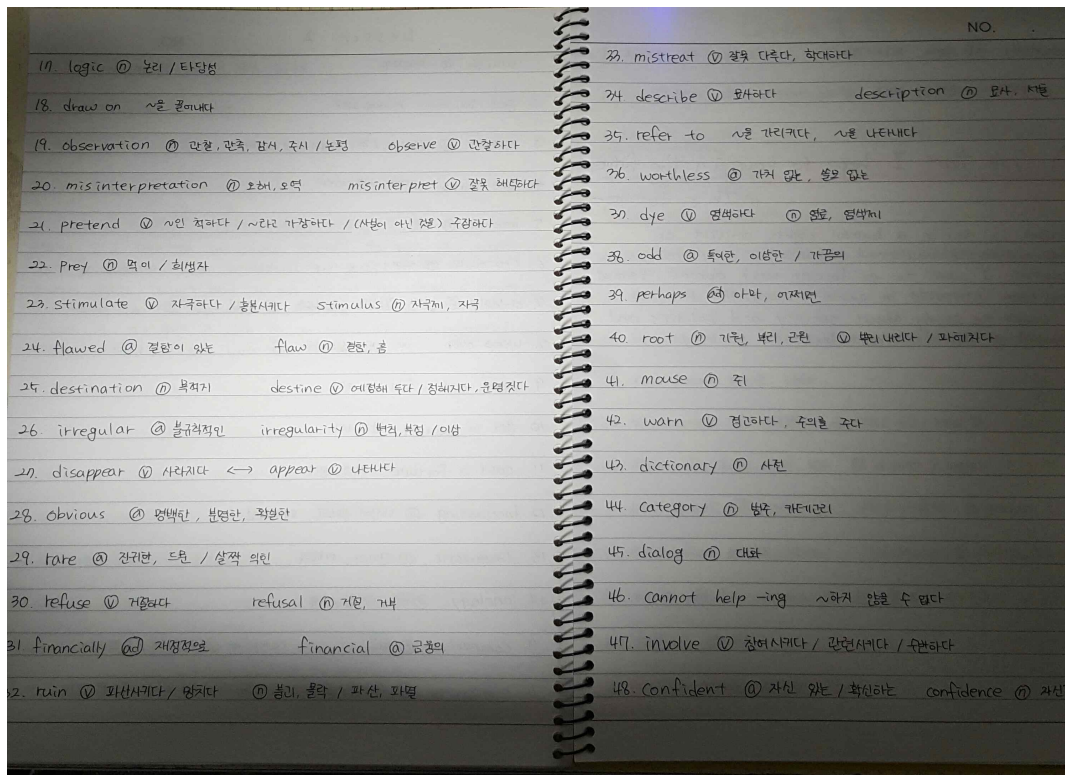 17. logic ⓝ 논리 / 타당성
18. draw on ~을 끌어내다
19. observation ⓝ 관찰, 관측, 감시, 주시 / 논평 observe ⓥ 관찰하다
20. misinterpretation ⓝ 오해, 오역 misinterpret ⓥ 잘못 해석하다
21. pretend ⓥ ~인 척하다 / ~라고 가장하다 / (사실이 아닌 것을) 주장하다
22. prey ⓝ 먹이 / 희생자
23. stimulate ⓥ 자극하다 / 흥분시키다 stimulus ⓝ 자극제, 자극
24. flawed ⓐ 결함이 있는 flaw ⓝ 결함, 흠
25. destination ⓝ 목적지 destine ⓥ 예정해 두다 / 정해지다, 운명짓다
26. irregular ⓐ 불규칙적인 irregularity ⓝ 변칙, 부정 / 이상
27. disappear ⓥ 사라지다 ↔ appear ⓥ 나타나다
28. obvious ⓐ 명백한, 분명한, 확실한
29. rare ⓐ 진귀한, 드문 / 살짝 익힌
30. refuse ⓥ 거절하다 refusal ⓝ 거절, 거부
31. financially ad 재정적으로 financial ⓐ 금융의
2. ruin ⓥ 파산시키다 / 망치다 ⓝ 붕괴, 몰락 / 파산, 파멸
NO.
33. mistreat ⓥ 잘못 다루다, 학대하다
34. describe ⓥ 묘사하다 description ⓝ 묘사, 서술
35. refer to ~을 가리키다, ~을 나타내다
36. worthless ⓐ 가치 없는, 쓸모 없는
37. dye ⓥ 염색하다 ⓝ 염료, 염색제
38. odd ⓐ 특이한, 이상한 / 가끔의
39. perhaps ad 아마, 어쩌면
40. root ⓝ 기원, 뿌리, 근원 ⓥ 뿌리 내리다 / 파헤치다
41. mouse ⓝ 쥐
42. warn ⓥ 경고하다, 주의를 주다
43. dictionary ⓝ 사전
44. category ⓝ 범주, 카테고리
45. dialog ⓝ 대화
46. cannot help -ing ~하지 않을 수 없다
47. involve ⓥ 참여시키다 / 관련시키다 / 수반하다
48. confident ⓐ 자신 있는 / 확신하는 confidence ⓝ 자신